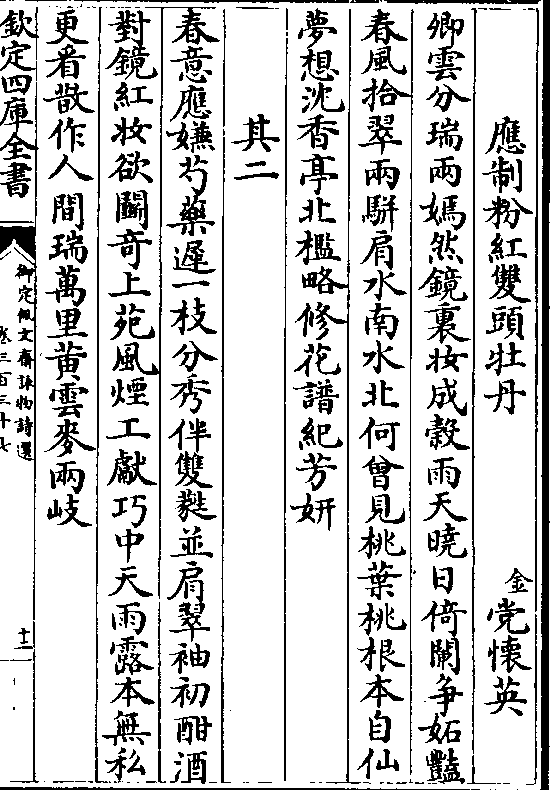 應制粉紅雙頭牡丹 金 党懷英
卿雲分瑞兩嫣然鏡裏妝成穀雨天曉日倚闌爭妬豔
春風拾翠兩駢肩水南水北何曾見桃葉桃根本自仙
夢想沈香亭北檻略修花譜紀芳妍
其二
春意應嫌芍藥遲一枝分秀伴雙蕤並肩翠袖初酣酒
對鏡紅妝欲鬭奇上苑風煙工獻巧中天雨露本無私
更看散作人間瑞萬里黄雲麥兩岐
欽定四庫全書
御定佩文齋詠物詩選
卷三百三十七
十二